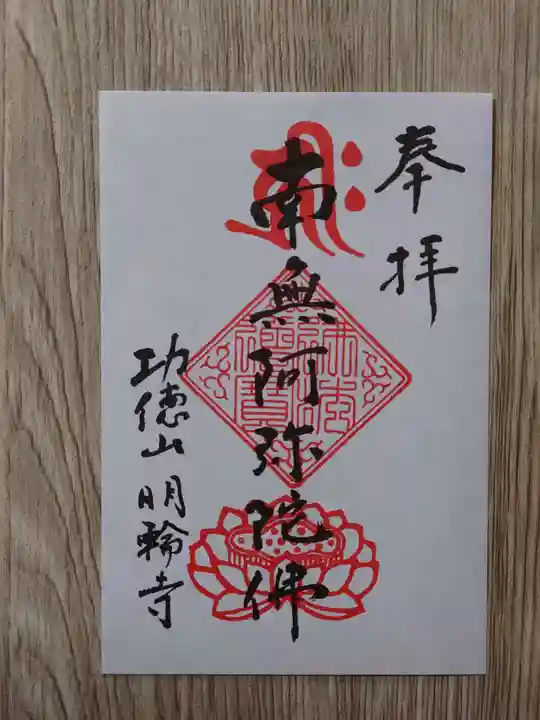 奉拝
南無阿弥陀佛
功徳山明輪寺